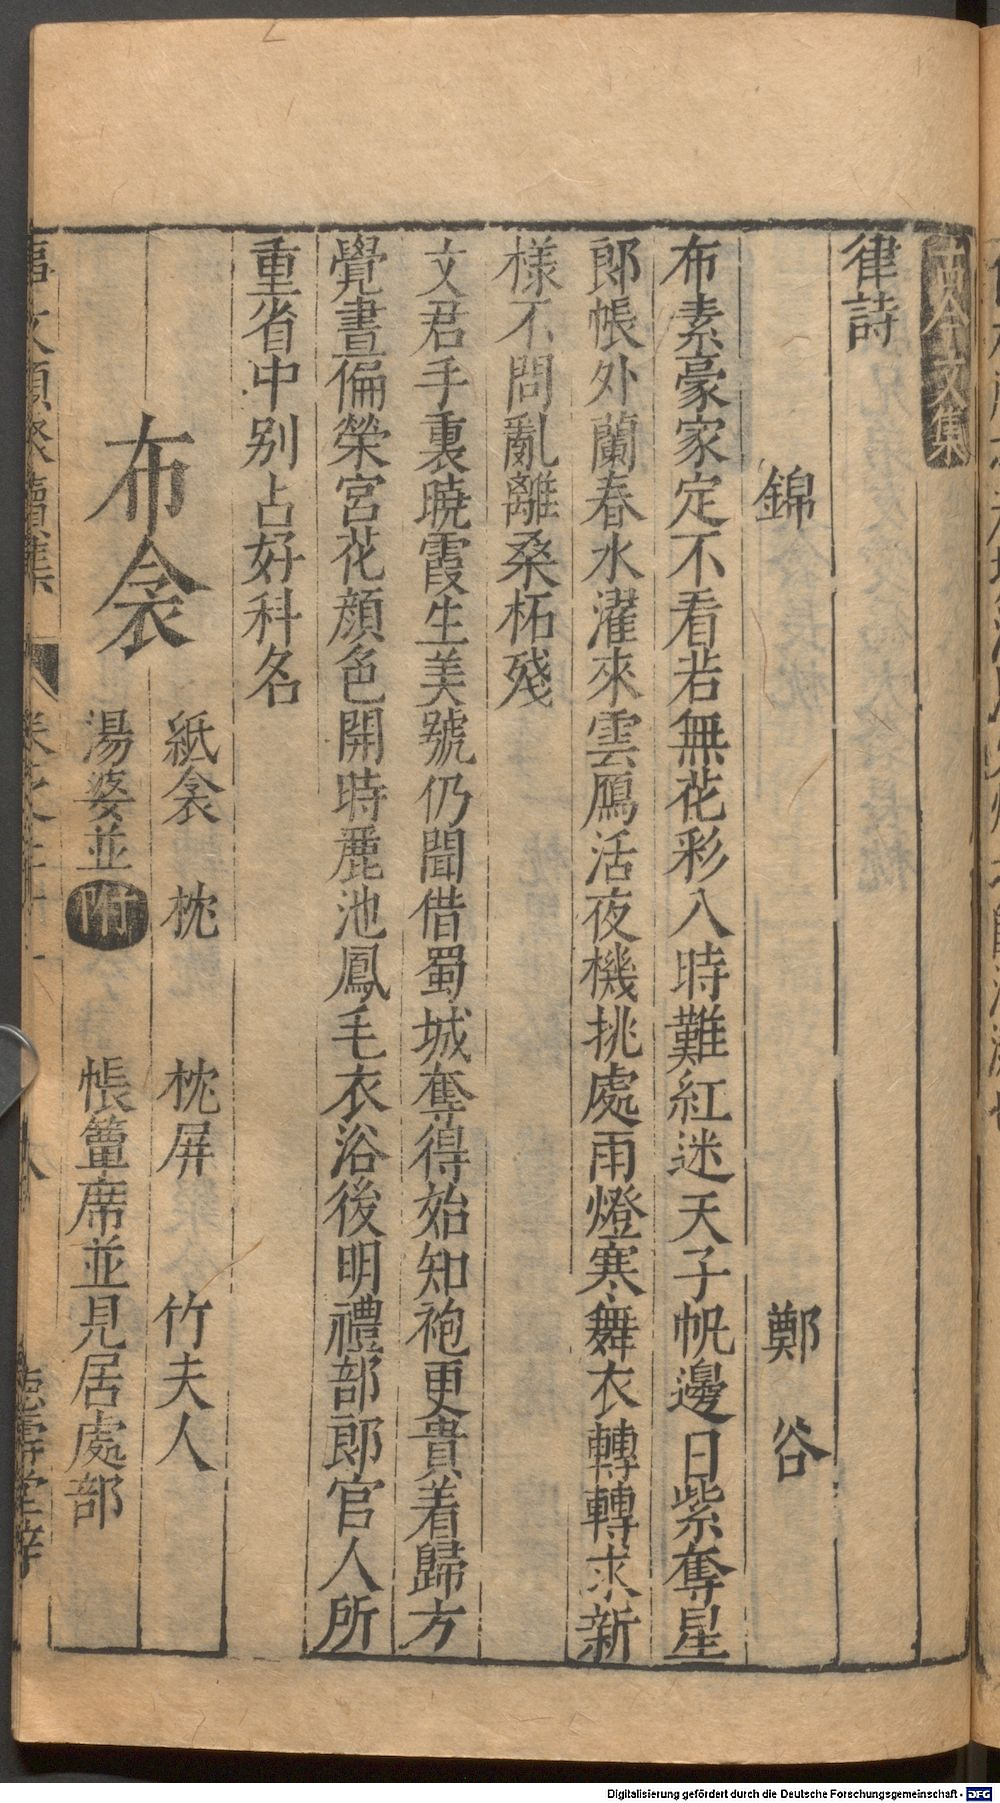 古今文集
律詩
錦 鄭谷
布素豪家定不看若無花彩入時難紅迷天子帆邊日紫奪星
郎帳外蘭春水濯來雲鴈活夜機挑處雨燈寒舞衣轉轉求新
樣不問亂離桑柘殘
文君手裏曉霞生美號仍聞借蜀城奪得始知袍更貴着歸方
覺晝偏榮宮花顏色開時麗池鳳毛衣浴後明禮部郎官人所
重省中别占好科名
布衾
紙衾 枕 枕屏 竹夫人
湯婆並附 帳簟席並見居處部
事文類聚續集 卷之二十一 德壽堂梓
Digitalisierung gefördert durch die Deutsche Forschungsgemeinschaft - DFG